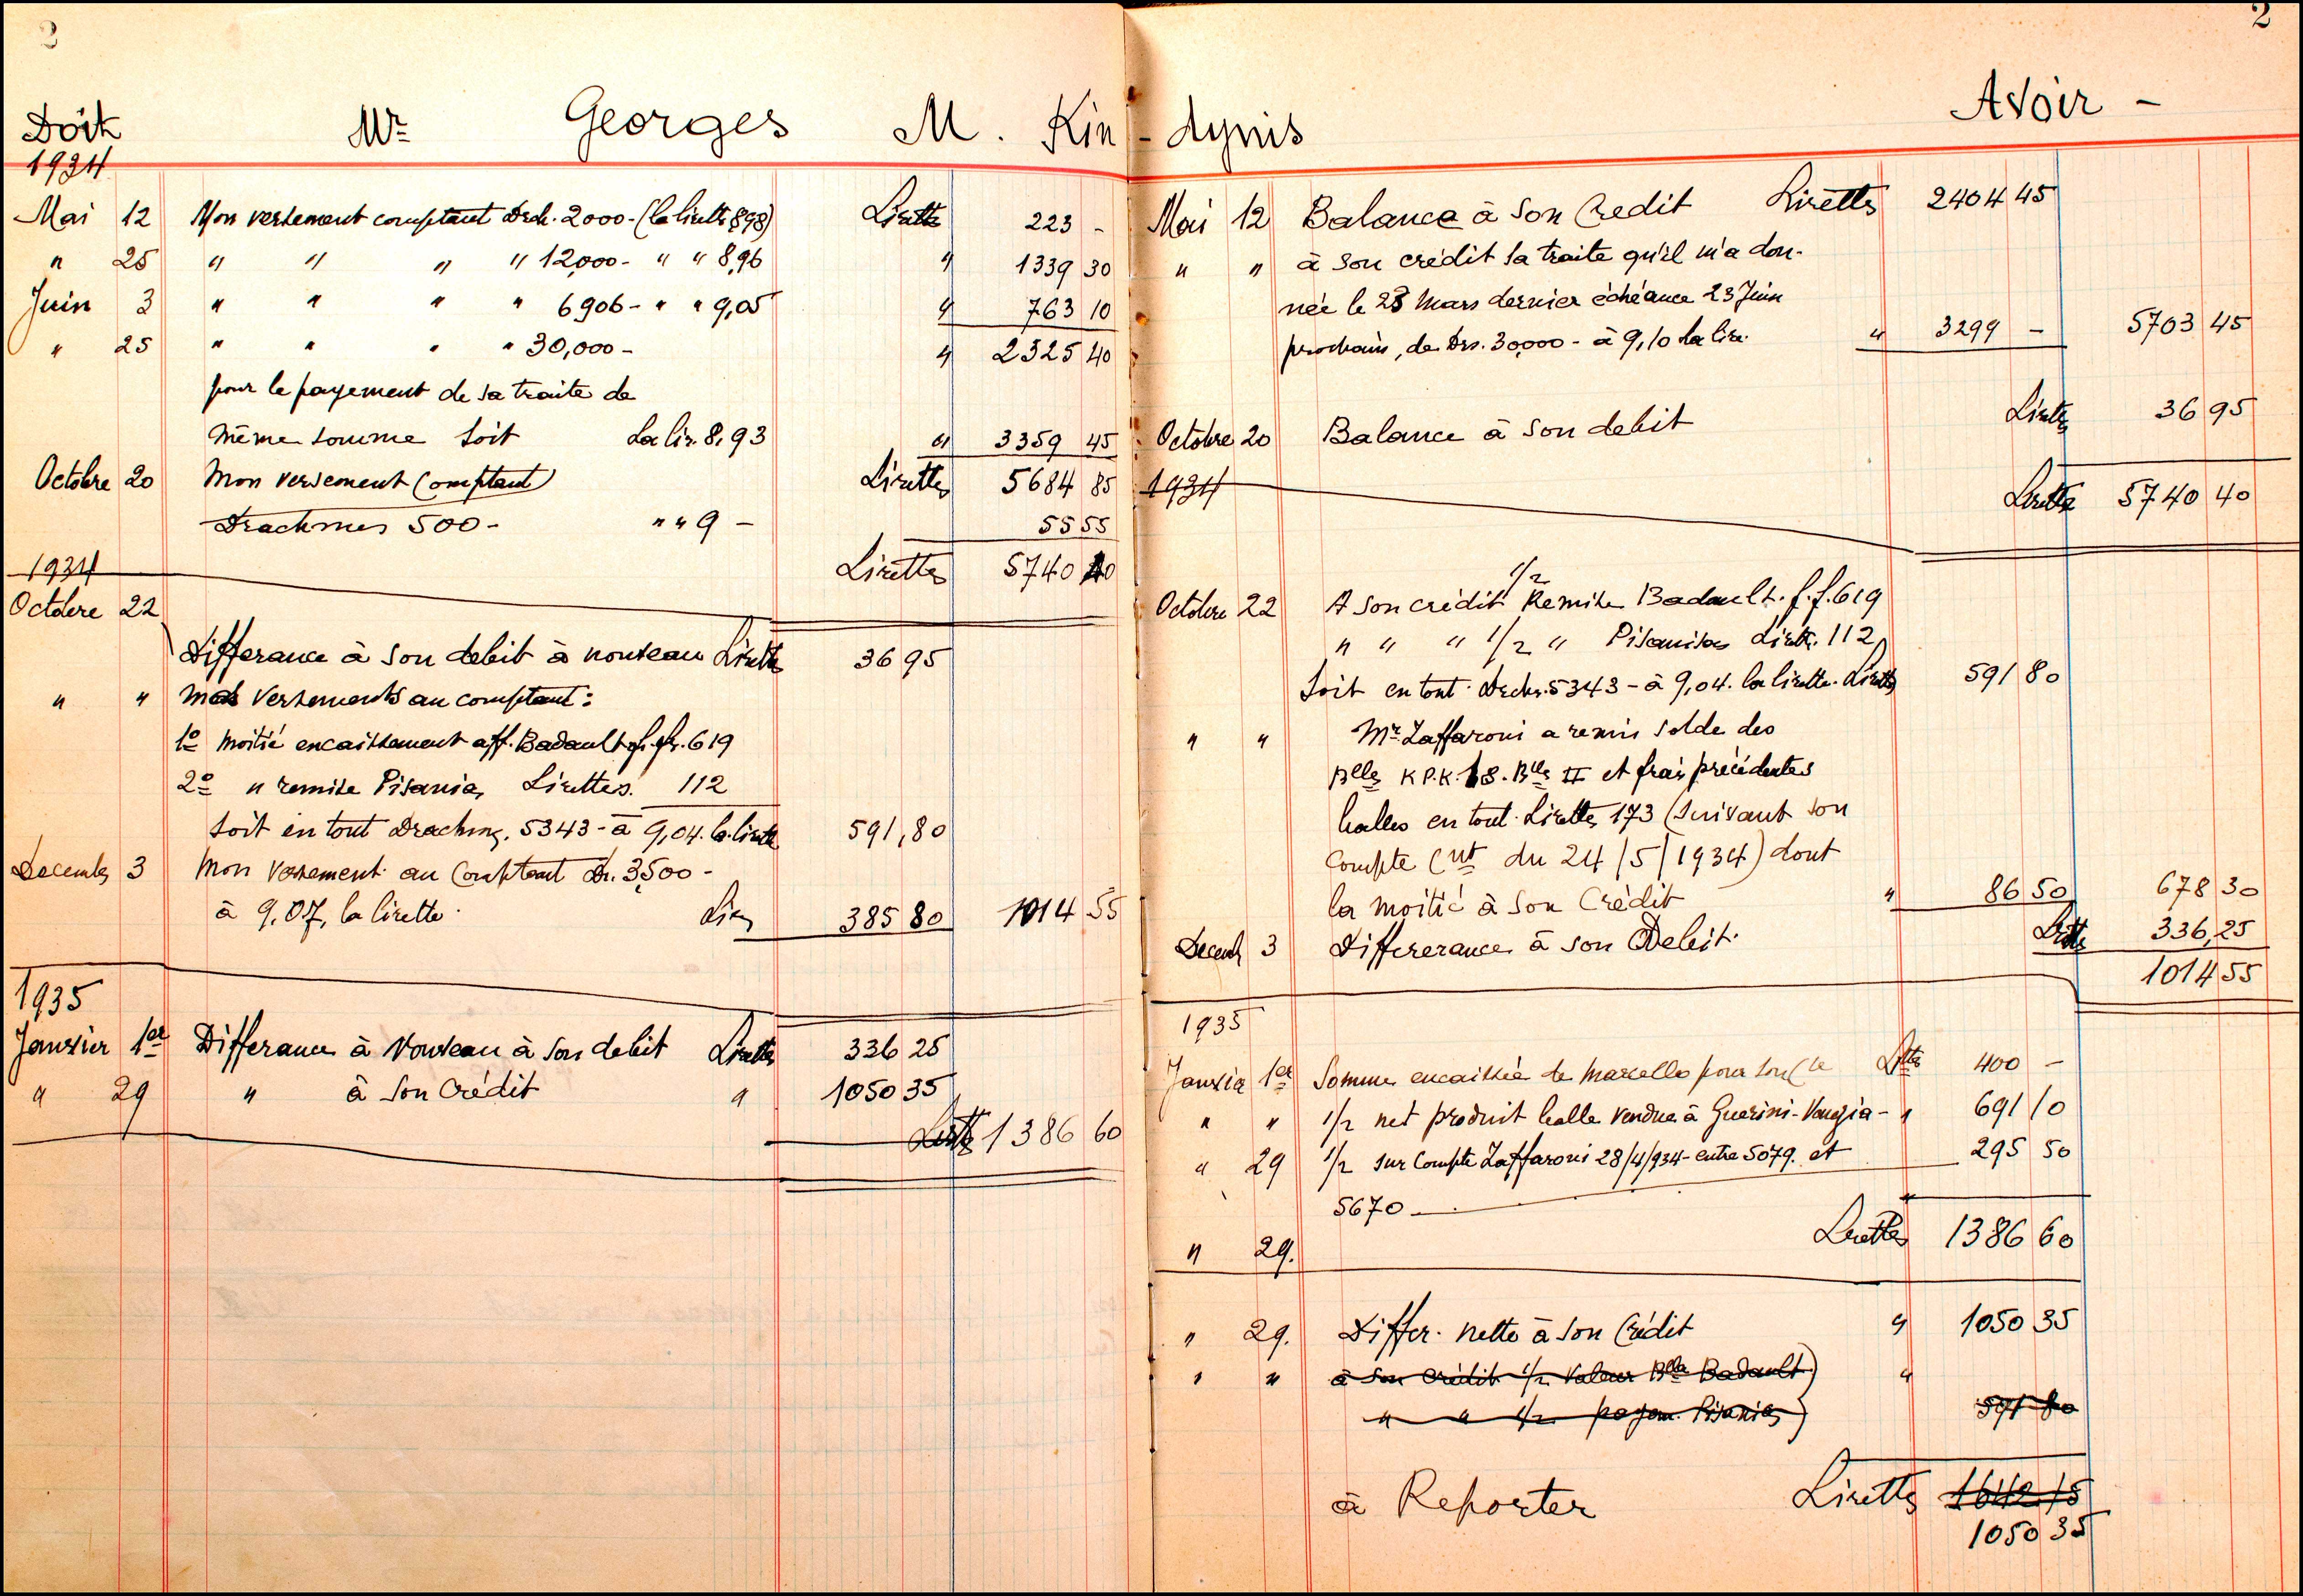 2
Doit Mr Georges M. Kin-
1934
Mai 12 Mon versement comptant Drch. 2000- (la lirette 8,98) Lirette 223 -
" 25 " " " " 12,000- " " 8,96 " 1339 30
Juin 3 " " " " 6906- " " 9,05 " 763 10
" 25 " " " " 30,000- " 2325 40
pour le payement de sa traite de
même somme soit La lir. 8,93 " 3359 45
Octobre 20 Mon versement Comptant Lirettes 5684 85
Drachmes 500- " " 9 - 55 55
1934 Lirettes 5740 40
Octobre 22
Differance à son debit à nouveau Lirettes 36 95
" " mes Versements au comptant:
1o moitié encaissement aff. Badault f. fr. 619
2o " remise Pisania, Lirettes. 112
soit en tout Drachms. 5343- à 9,04. la lirette 591,80
Decembre 3 Mon versement au Comptant Dr. 3,500-
à 9.07, la lirette. Lires 385 80 1014 55
1935
Janvier 1er Differance à Nouveau à son debit Lirettes 336 25
" 29 " à son Crédit " 1050 35
Lirettes 1386 60
2
Avoir -
dynis
Mai 12 Balance à son Credit Lirettes 2404 45
" " à son crédit sa traite qu'il m'a don-
née le 23 Mars dernier échéance 23 Juin
prochain, de Drs. 30,000- à 9,10 la lire. " 3299 - 5703 45
Octobre 20 Balance à son debit Lirettes 36 95
1934 Lirettes 5740 40
Octobre 22 A son crédit 1/2 Remise Badault. f. f. 619
" " " 1/2 " Pisanias Lirett. 112
Soit en tout. Drchs. 5343- à 9,04. la lirette. Lirettes 591 80
" " Mr Zaffaroni a remis solde des
Blles K.P.K. 18. Blls II et frais précédentes
balles en tout. Lirettes 173 (suivant son
Compte Cnt du 24/5/1934) dont
la moitié à son Crédit " 86 50 678 30
Decemb 3 Differerance à son Debit. Lirtts 336,25
1014 55
1935
Janvier 1er Somme encaissée de Marcello pour son Cte Lttes 400 -
" " 1/2 net produit balle vendue à Guerini-Venezia- " 691 10
" 29 1/2 sur Compte Zaffaroni 28/4/934- entre 5079. et 295 50
5670 -
" 29. Lirettes 1386 60
" 29. Differ. nette à son Crédit " 1050 35
" " à son crédit 1/2 Valeur Blle Badault "
" " 1/2 payem. Pisanias 591 80
à Reporter Lirettes 1642 15
1050 35